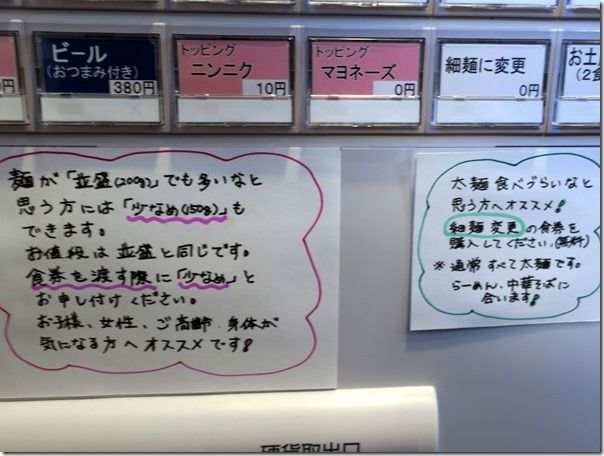 円
ビール
(おつまみ付き)
380円
トッピング
ニンニク
10円
トッピング
マヨネーズ
0円
細麺に変更
0円
お土
(2食
麺が「並盛(200g)」でも多いなと
思う方には「少なめ(150g)」も
できます。
お値段は並盛と同じです。
食券を渡す際に「少なめ」と
お申し付けください。
お子様、女性、ご高齢、身体が
気になる方へオススメです!
太麺食べづらいなと
思う方へオススメ!
細麺変更の食券を
購入してください。(無料)
※通常すべて太麺です。
らーめん、中華そばに
合います!
硬貨取出口